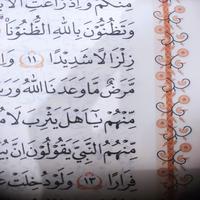 مِنكُمْ وَإِذْ زَاغَتِ
وَتَظُنُّونَ بِٱللَّهِ ٱلظُّنُونَا۠
زِلْزَالًا شَدِيدًا ١١
مَّرَضٌ مَّا وَعَدَنَا ٱللَّهُ وَرَ
مِّنْهُمْ يَٰٓأَهْلَ يَثْرِبَ لَا مُ
مِّنْهُمُ ٱلنَّبِىَّ يَقُولُونَ إِنَّ بُيُ
فِرَارًا ١٣ وَلَوْ دُخِلَتْ عَ